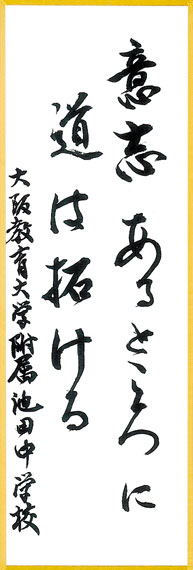 意志あるところに
道は拓ける
大阪教育大学附属池田中学校